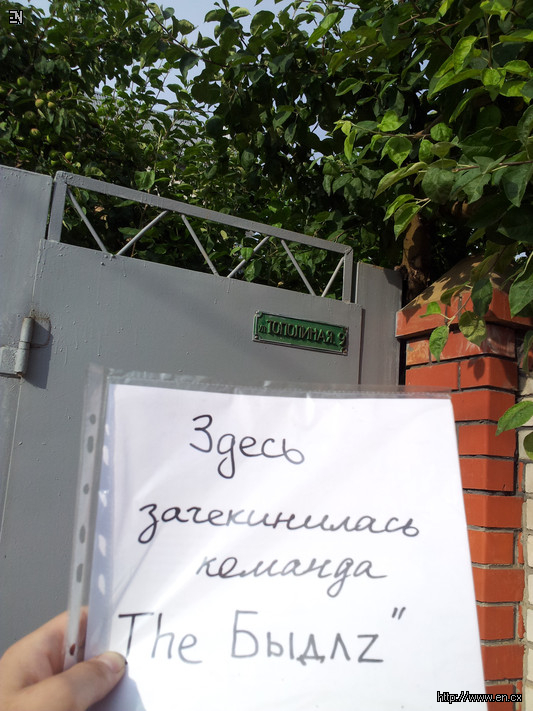 EN
ул. ТОПОЛИНАЯ, 9
Здесь
зачекинилась
команда
The Быдлz"
http://www.en.cx